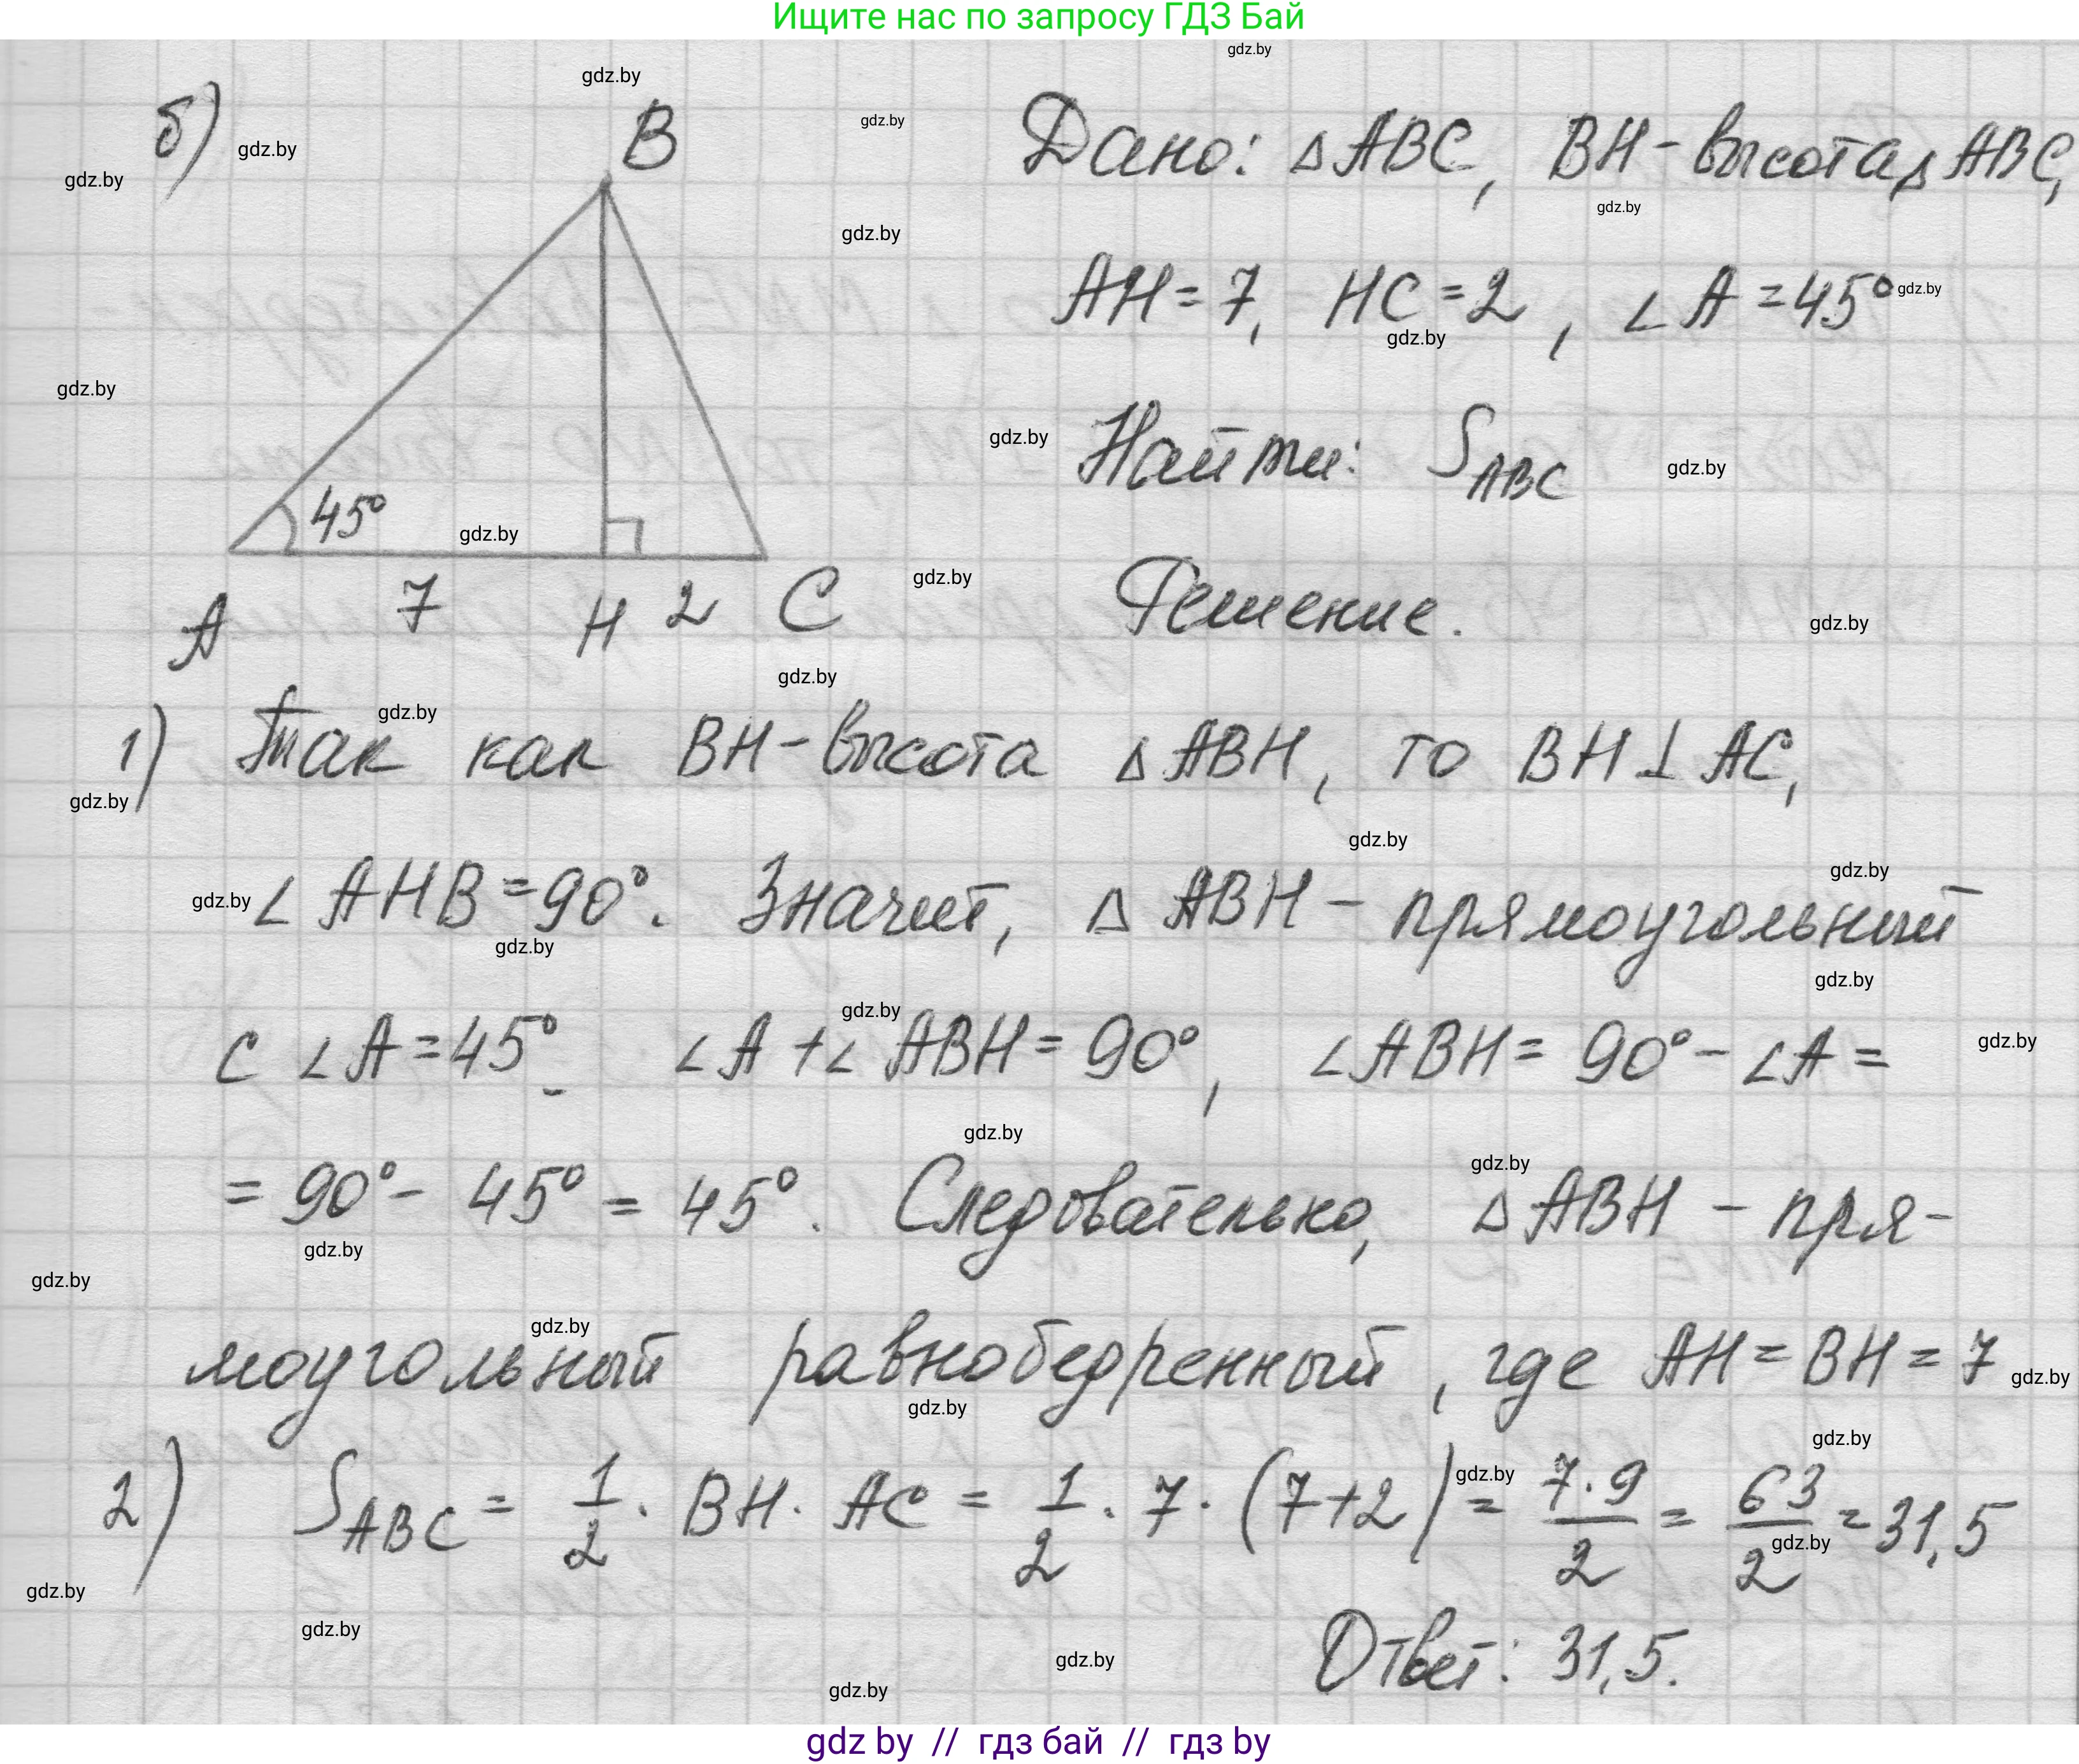 Ищите нас по запросу ГДЗ Бай
б)
B
45°
A 7 H 2 C
Дано: △ABC, BH - высота △ABC,
AH = 7, HC = 2, ∠A = 45°
Найти: S_ABC
Решение.
1) Так как BH - высота △ABH, то BH ⊥ AC,
∠AHB = 90°. Значит, △ABH - прямоугольный
с ∠A = 45°. ∠A + ∠ABH = 90°, ∠ABH = 90° - ∠A =
= 90° - 45° = 45°. Следовательно, △ABH - пря-
моугольный равнобедренный, где AH = BH = 7
2) S_ABC = 1/2 · BH · AC = 1/2 · 7 · (7+2) = 7·9/2 = 63/2 = 31,5
Ответ: 31,5.
gdz by // гдз бай // гдз by